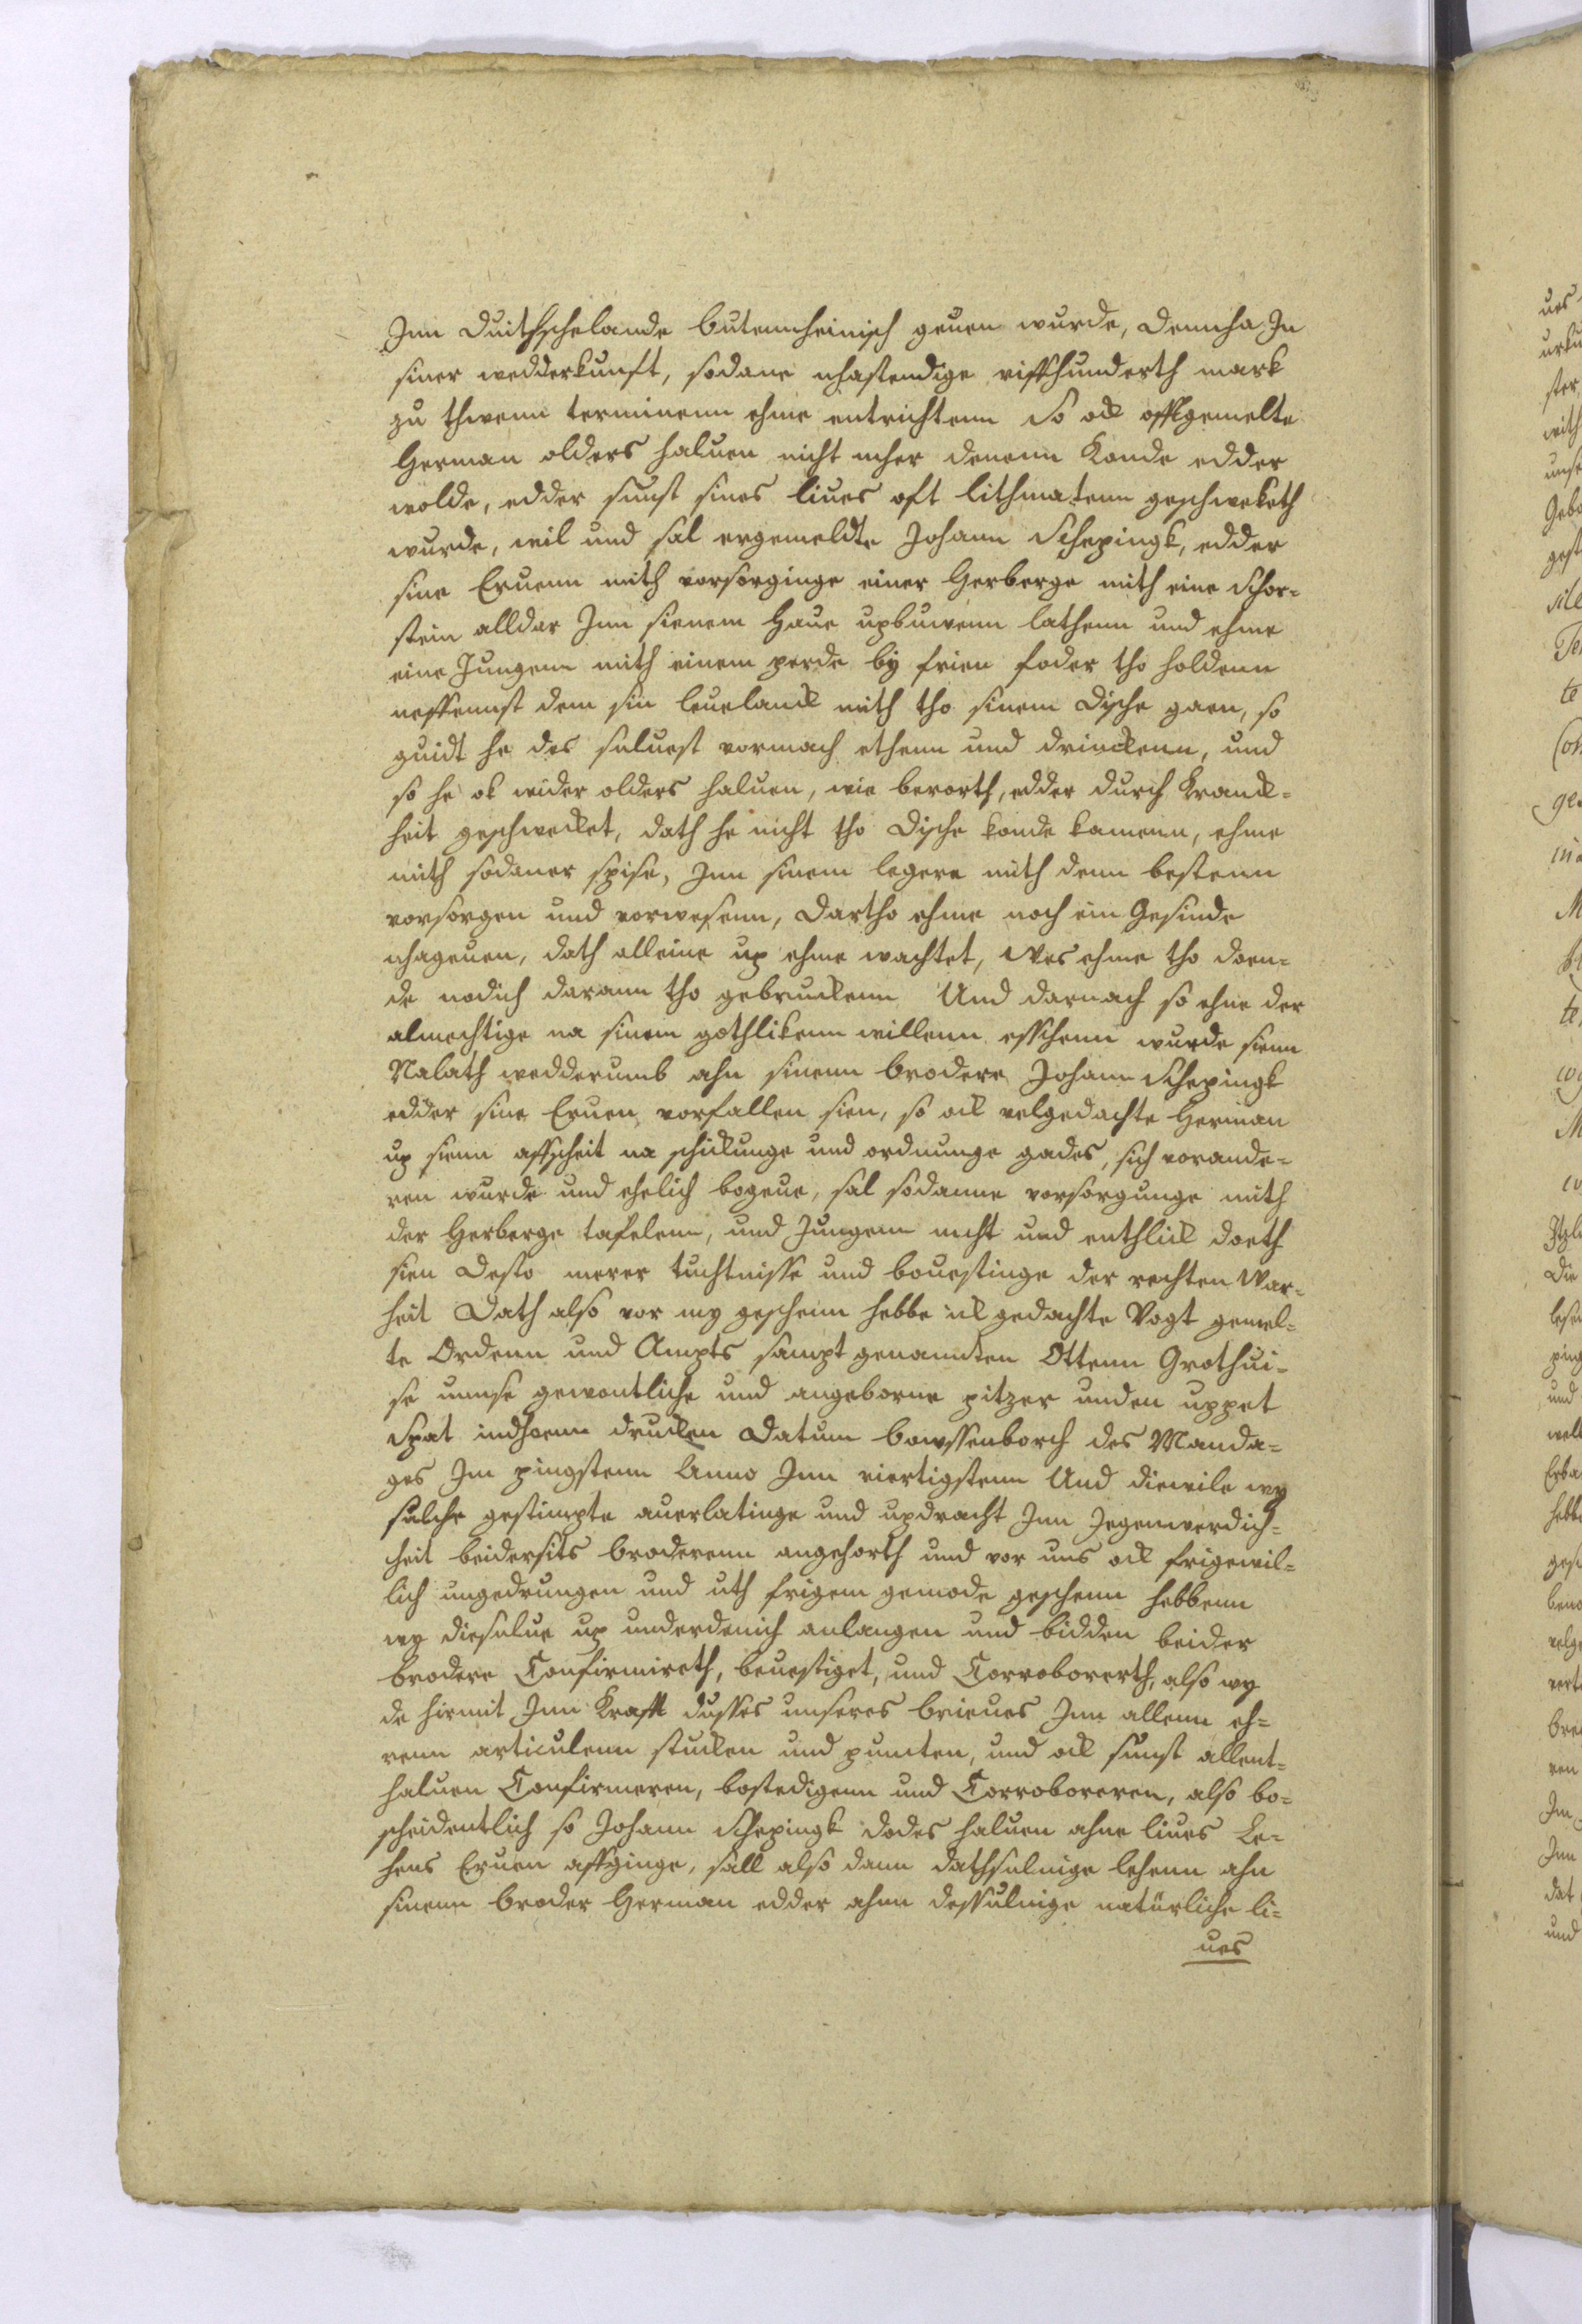 Inn Duithschelande butennheimisch geuen wurde, dennha In
siner wedderkunft, sodane nhastendige viffhunderth mark
zu thwenn terminenn ehme entrichtenn So ock offtgemelte
Herman olders haluen nicht mher denenn Konde edder
wolde, edder sunst sines liues oft lithmatenn geschweketh
wurde, wil und sal ergemeldte Johann Schepingk, edder
sine Eruenn mith vorsorginge einer Herberge mith eine Schor-
stein alldar Inn sienem Haue upbuwenn lathenn und ehme
eine Jungenn mith einem perde by frien foder tho holdenn
neffennst dem sin leuelanck mith tho sinem Dische gaen, so
guidt he des suluest vormach ethenn und drinckenn, und
so he ok wider olders haluen, wie berorth, edder durch Kranck-
heit geschwecket, dath he nicht tho Dische konde kamenn, ehme
mith sodaner spise, Inn sinem legere mith denn bestenn
vorsorgen und vorwesenn, Dartho ehme noch ein Gesinde
nhageuen, dath alleine up ehme wachtet, Wes ehme tho doen-
de nodich darann tho gebruckenn Und darnach so ehne der
almechtige na sinem gothlikenn willenn esschenn wurde sienn
Nalath wedderumb ahn sinenn brodere Johann Schepingk
edder sine Eruen vorfallen sien, so ock velgedachte Herman
up sienn affscheit na schickunge und ordnunge gades, sich vorande-
ren wurde und ehelich bogeue, sal sodanne vorsorgunge mith
der Herberge tafelenn, und Jungenn nicht und enthlick doeth
sien Desto merer tuchtnisse und bouestinge der rechten War-
heit Dath also vor my geschenn hebbe ick gedachte Vogt gemel-
te Ordenn und Ampts sampt genannten Ottenn Grothui-
se unnse gewontliche und angeborne pitzer unden uppet
Spat indhoenn drucken Datum bowssenborch des Manda-
ges Im pingstenn Anno Inn viertigstenn Und diewile wy
sulche gestimpte auerlatinge und updracht Inn Jegenwerdich-
heit beidersits broderenn angehorth und vor uns ock frigewil-
lich ungedrungen und uth frigem gemode geschenn hebbenn
wy diesulue up underdenich anlangen und bidden beider
brodere Confirmireth, beuestiget, und Corroborerth, also wy
de hirmit Inn Krafft dusses unseres brieues Inn allenn eh-
renn articulenn stucken und puncten, und ock sunst allent-
haluen Confirmeren, bostedigenn und Corroboreren, also bo-
scheidentlich so Johann Schepingk dodes haluen ahne liues Le-
hens Eruen affginge, sall also dann dathsuluige lehenn ahn
sinenn broder Herman edder ahnn dessuluige natürliche li-
ues